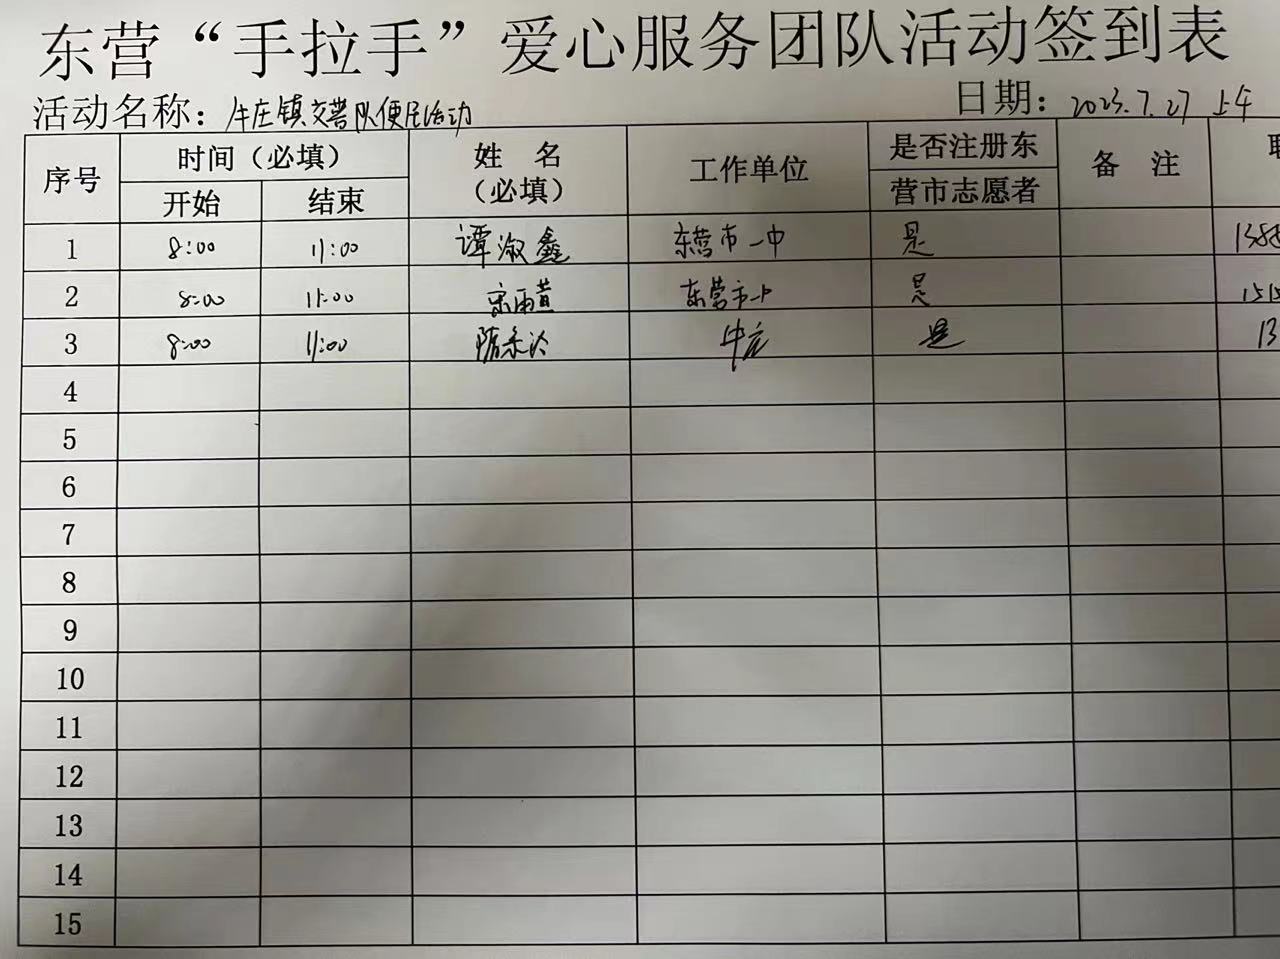 东营“手拉手”爱心服务团队活动签到表
活动名称：牛庄镇交警队便民活动 日期：2023.7.27 上午
序号 时间（必填） 姓 名（必填） 工作单位 是否注册东营市志愿者 备 注
开始 结束
1 8:00 11:00 谭淑鑫 东营市一中 是 1388
2 8:00 11:00 东营市一中 是 1515
3 8:00 11:00 牛庄 是 13
4
5
6
7
8
9
10
11
12
13
14
15